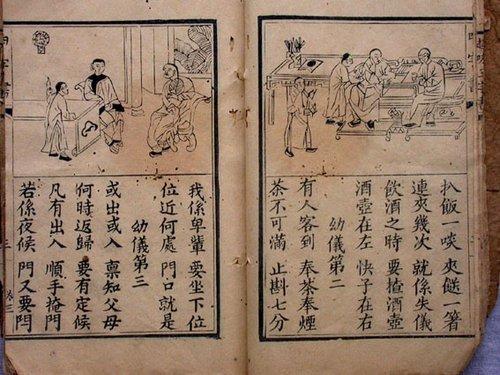 扒飯一啖 夾餸一箸
連夾幾次 就係失儀
飲酒之時 要揸酒壺
酒壺在左 快子在右
幼儀第二
有人客到 奉茶奉煙
茶不可滿 止斟七分
我係卑輩 要坐下位
位近何處 門口就是
幼儀第三
或出或入 禀知父母
何時返歸 要有定候
凡有出入 順手掩門
若係夜候 門又要閂